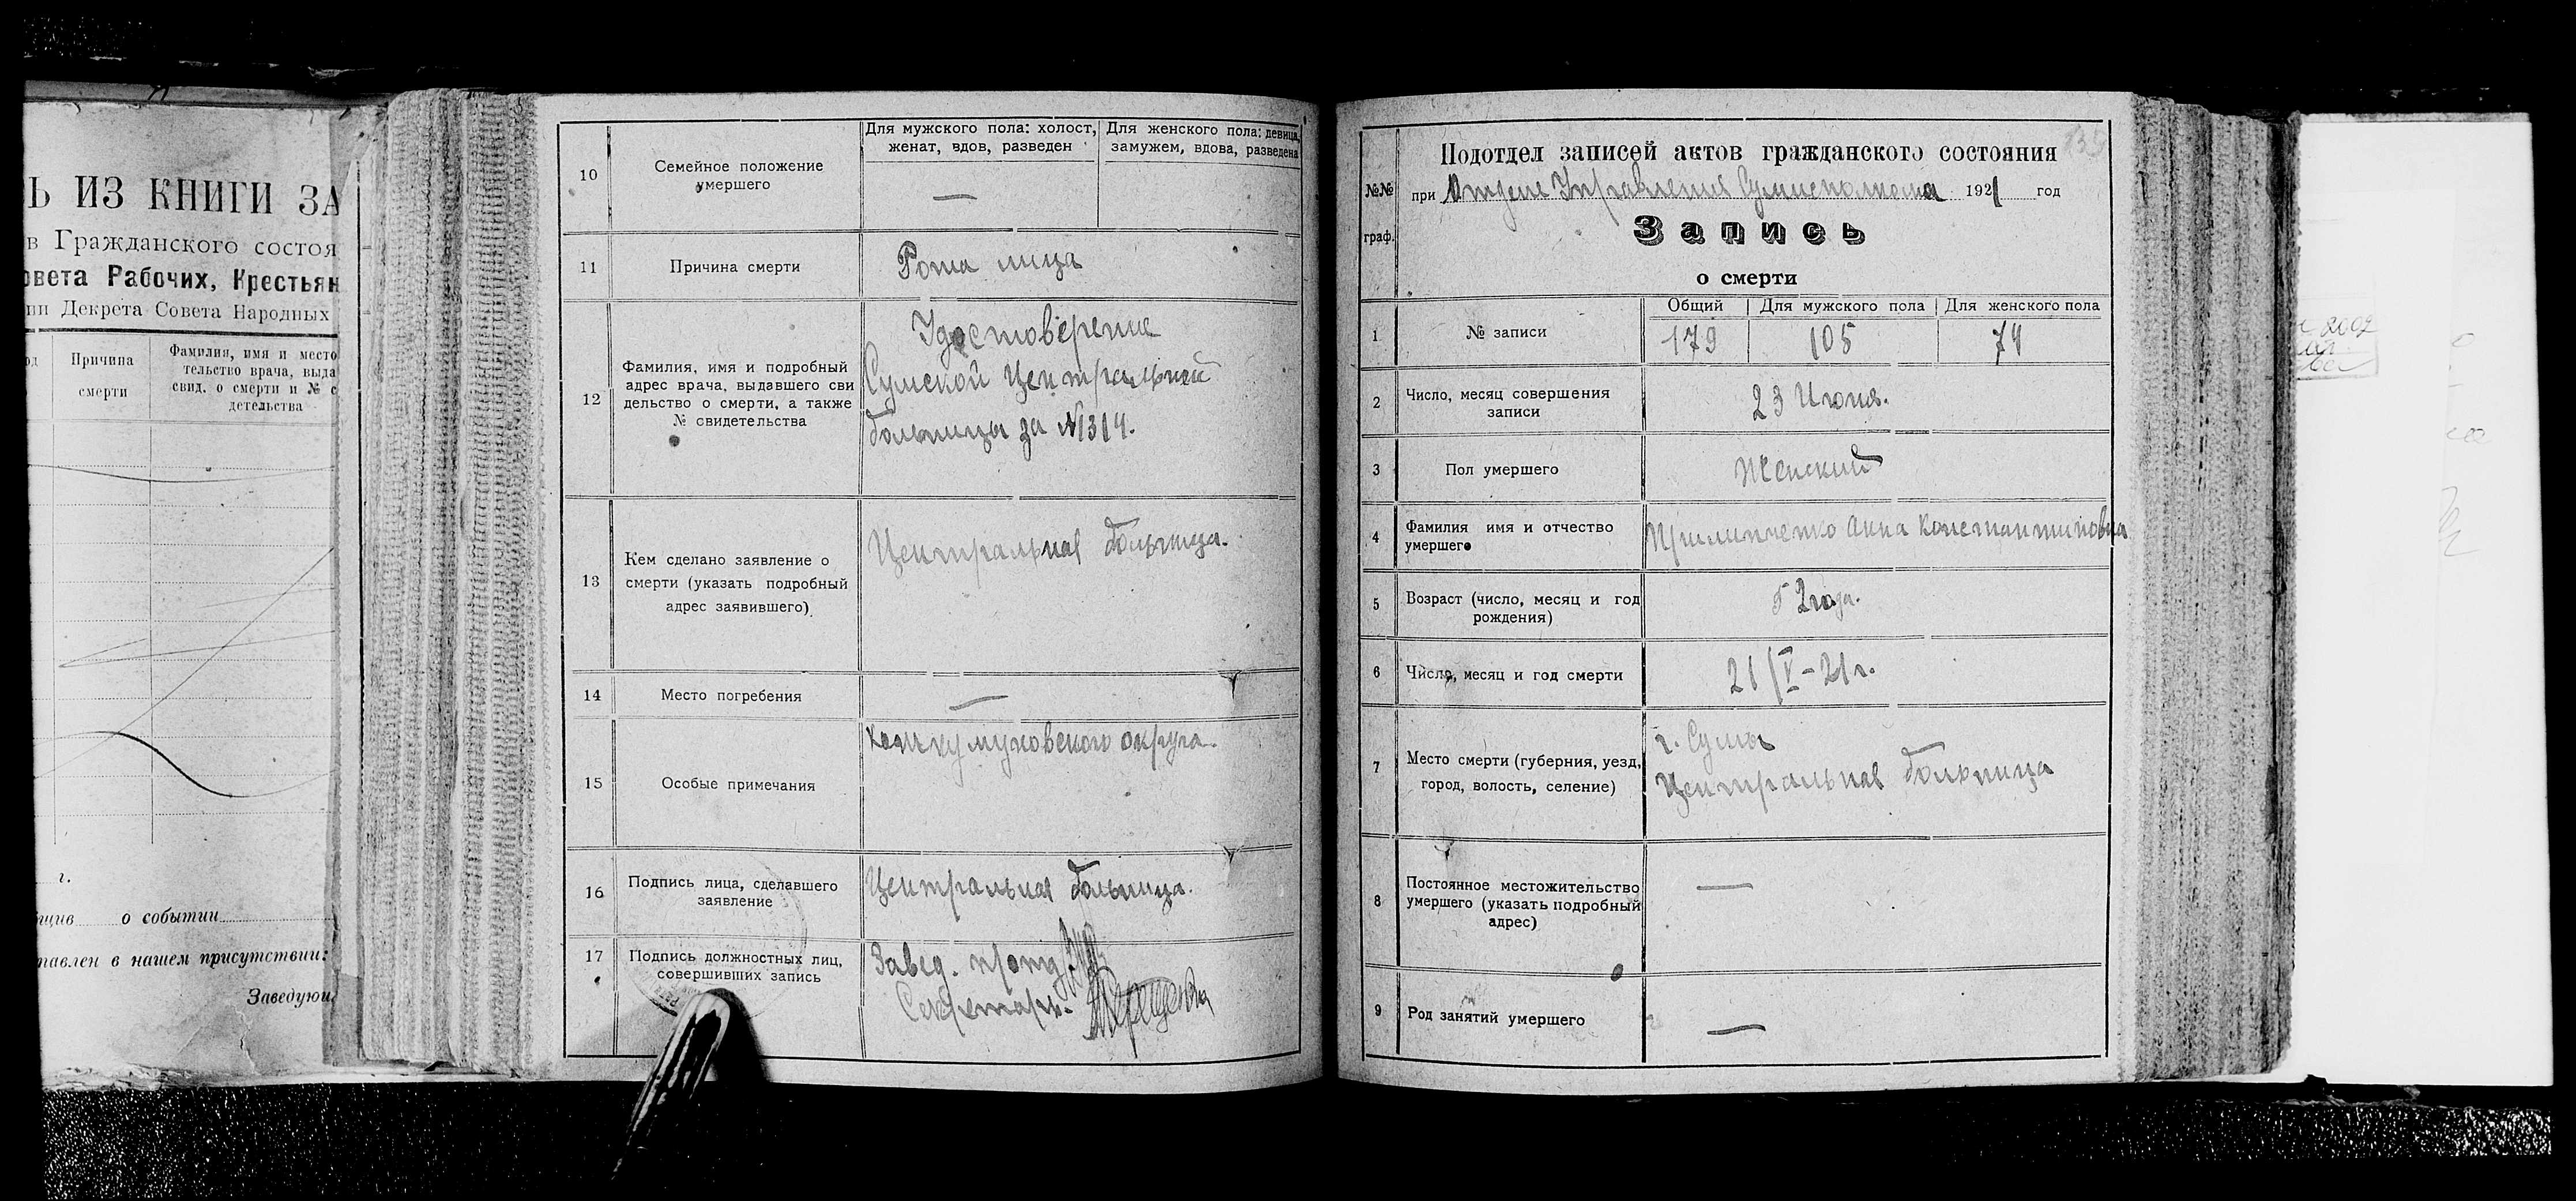 Ь ИЗ КНИГИ ЗА
в Гражданского состоя
овета Рабочих, Крестьян
ии Декрета Совета Народных
Причина
смерти
Фамилия, имя и место
тельство врача, выда
свид. о смерти и № с
детельства
г.
о событии
тавлен в нашем присутствии:
Заведую
10
Семейное положение
умершего
Для мужского пола: холост,
женат, вдов, разведен
Для женского пола: девица,
замужем, вдова, разведена
—
11
Причина смерти
лица
12
Фамилия, имя и подробный
адрес врача, выдавшего сви
дельство о смерти, а также
№ свидетельства
Удостоверение
Сумской Центральной
больницы за №1314.
13
Кем сделано заявление о
смерти (указать подробный
адрес заявившего)
Центральная больница.
14
Место погребения
—
15
Особые примечания
округа.
16
Подпись лица, сделавшего
заявление
Центральная больница.
17
Подпись должностных лиц,
совершивших запись
Завед.
Секретарь.
№№
граф.
Подотдел записей актов гражданского состояния
при Отделе Управления Сумисполкома 1921 год
Запись
о смерти
1
№ записи
Общий
Для мужского пола
Для женского пола
179
105
74
2
Число, месяц совершения
записи
23 Июня.
3
Пол умершего
Женский
4
Фамилия имя и отчество
умершего
Анна Константиновна
5
Возраст (число, месяц и год
рождения)
52 года.
6
Число, месяц и год смерти
21/V-21г.
7
Место смерти (губерния, уезд,
город, волость, селение)
г. Сумы
Центральная больница
8
Постоянное местожительство
умершего (указать подробный
адрес)
—
9
Род занятий умершего
—